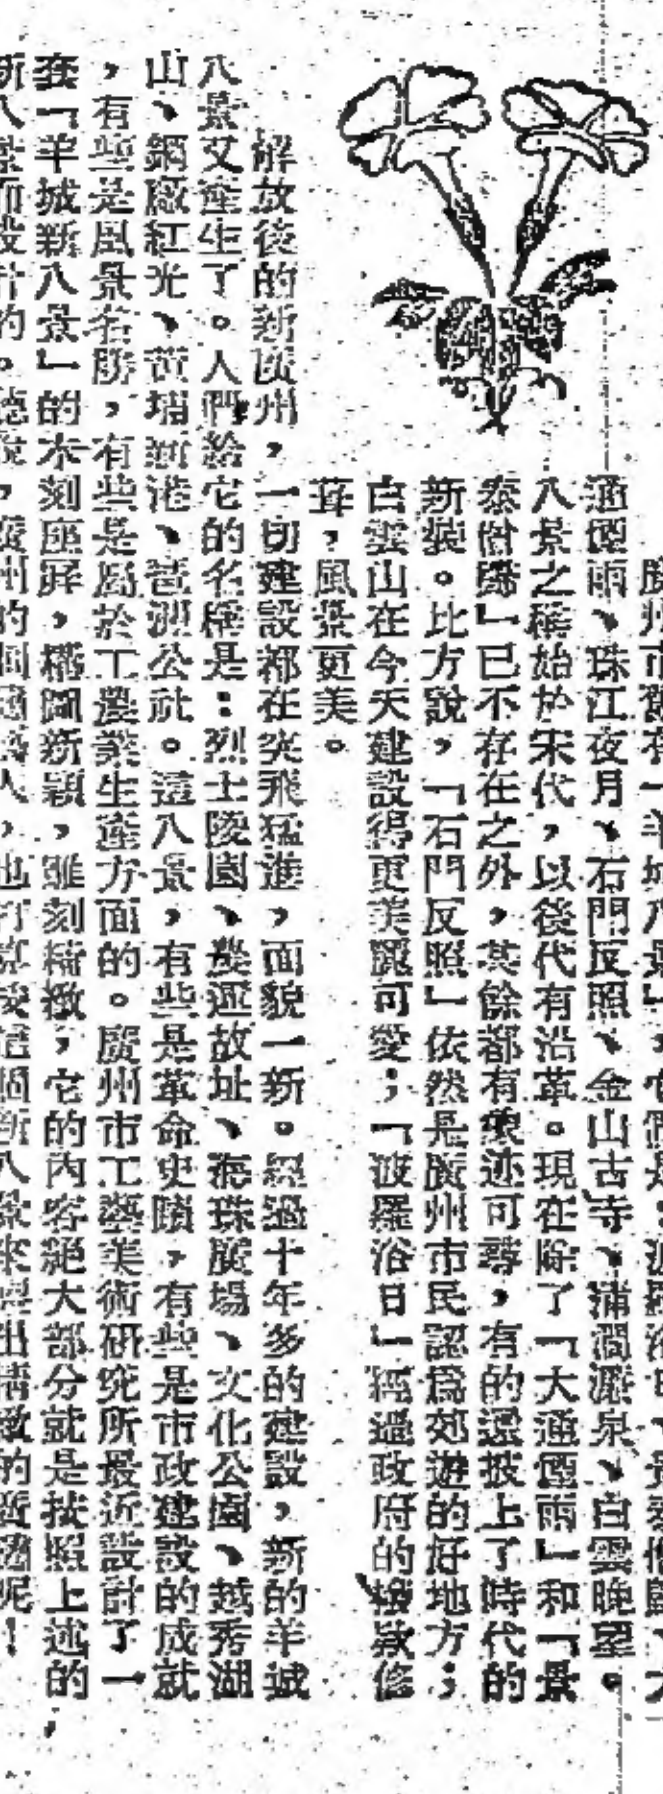 廣州市舊有「羊城八景」，它們是：波羅浴日、景泰僧歸、大
通煙雨、珠江夜月、石門反照、金山古寺、蒲澗濂泉、白雲晚望。
八景之稱始於宋代，以後代有沿革。現在除了「大通煙雨」和「景
泰僧歸」已不存在之外，其餘都有痕迹可尋，有的還披上了時代的
新裝。比方說，「石門反照」依然是廣州市民認爲郊遊的好地方；
白雲山在今天建設得更美麗可愛；「波羅浴日」經過政府的撥款修
葺，風景更美。
解放後的新廣州，一切建設都在突飛猛進，面貌一新。經過十年多的建設，新的羊城
八景又產生了。人們給它的名稱是：烈士陵園、農運故址、海珠廣場、文化公園、越秀湖
山、鋼廠紅光、黃埔新港、琶洲公社。這八景，有些是革命史蹟，有些是市政建設的成就
，有些是風景名勝，有些是屬於工農業生產方面的。廣州市工藝美術研究所最近設計了一
套「羊城新八景」的木刻座屏，構圖新穎，雖刻精緻，它的內容絕大部分就是按照上述的
新八景而設計的。聽說，廣州的